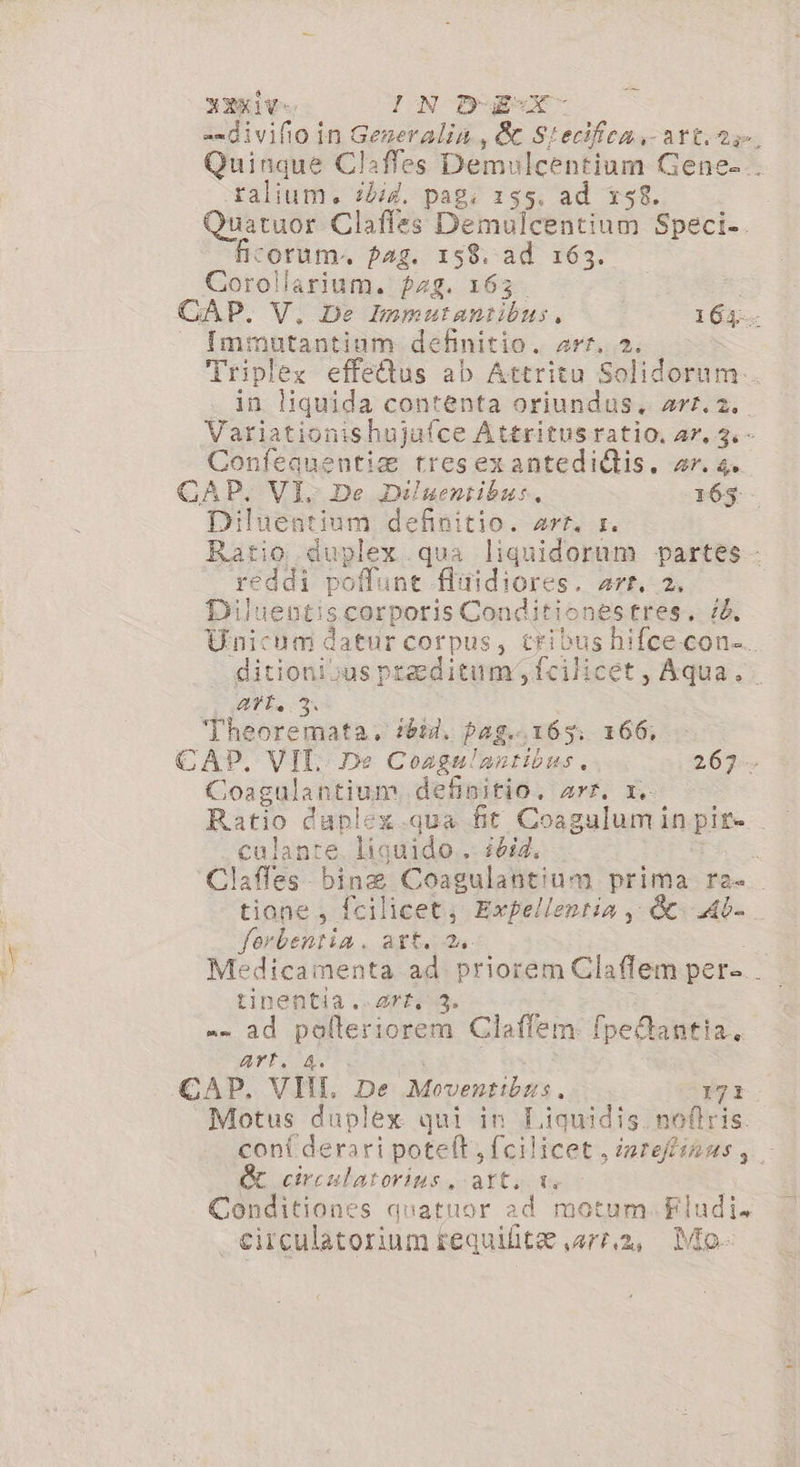 xxxiv INDEX
--divisio in Generalia, & Specifica, art. 2.
Quinque Classes Demulcentium Gene-
ralium. ibid. pag. 155. ad 158.
Quatuor Classes Demulcentium Speci-
ficorum. pag. 158. ad 163.
Corollarium. pag. 163
CAP. V. De Immutantibus. 164
Immutantium definitio. art. 2.
Triplex effectus ab Attritu Solidorum
in liquida contenta oriundus. art. 2.
Variationis hujusce Attritus ratio. ar. 3.
Consequentiæ tres ex antedictis. ar. 4.
CAP. VI. De Diluentibus. 165
Diluentium definitio. art. 1.
Ratio duplex qua liquidorum partes
reddi possunt fluidiores. art. 2.
Diluentis corporis Conditiones tres. ib.
Unicum datur corpus, tribus hisce con-
ditionibus præditum, scilicet, Aqua.
art. 3.
Theoremata. ibid. pag. 165. 166.
CAP. VII. De Coagulantibus. 267
Coagulantium definitio. art. 1.
Ratio duplex qua fit Coagulum in pir-
culante liquido. ibid.
Classes binæ Coagulantium prima ra-
tione, scilicet, Expellentia, & Ab-
sorbentia. art. 2.
Medicamenta ad priorem Classem per-
tinentia. art. 3.
-- ad posteriorem Classem spectantia.
art. 4.
CAP. VIII. De Moventibus. 171
Motus duplex qui in Liquidis nostris
considerari potest, scilicet, intestinus,
& circulatorius. art. 1.
Conditiones quatuor ad motum Fludi-
circulatorium requisitæ, art. 2, Mo-